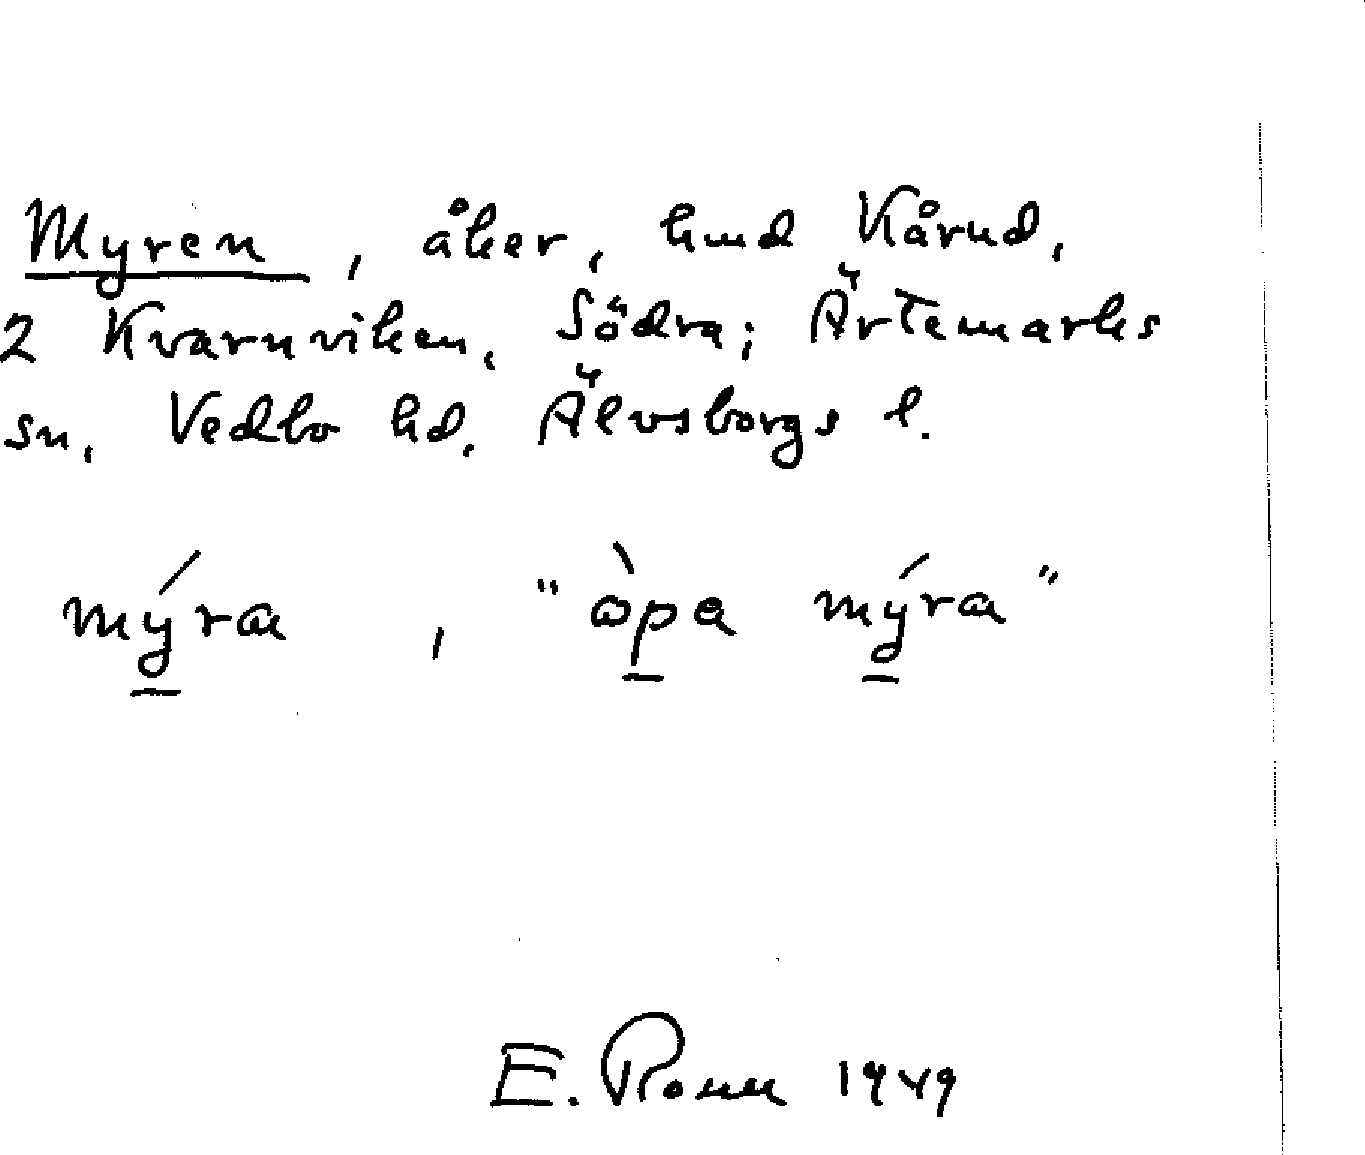 Myren, åker, hmd Kårud,
2 Kvarnviken, Södra; Ärtemarks
sn, Vedbo hd, Älvsborgs l.
mýra, "òpa mýra"
E. Ronn 1949